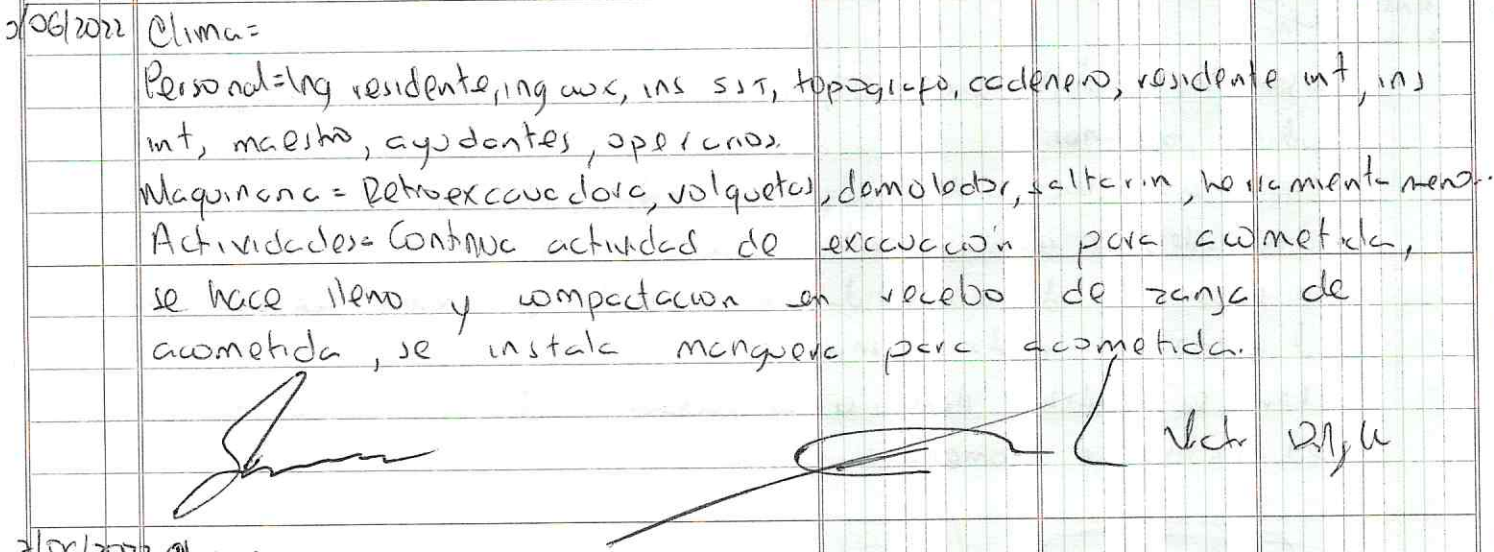 2/06/2022 Clima=
Personal= Ing residente, ing aux, ins SST, topografo, cadenero, residente int, ins
int, maestro, ayudantes, operarios.
Maquinaria= Retroexcavadora, volquetas, demoledor, saltarin, herramienta menor.
Actividades= Continua actividad de excavación para acometida,
se hace lleno y compactacion en recebo de zanja de
acometida, se instala manguera para acometida.